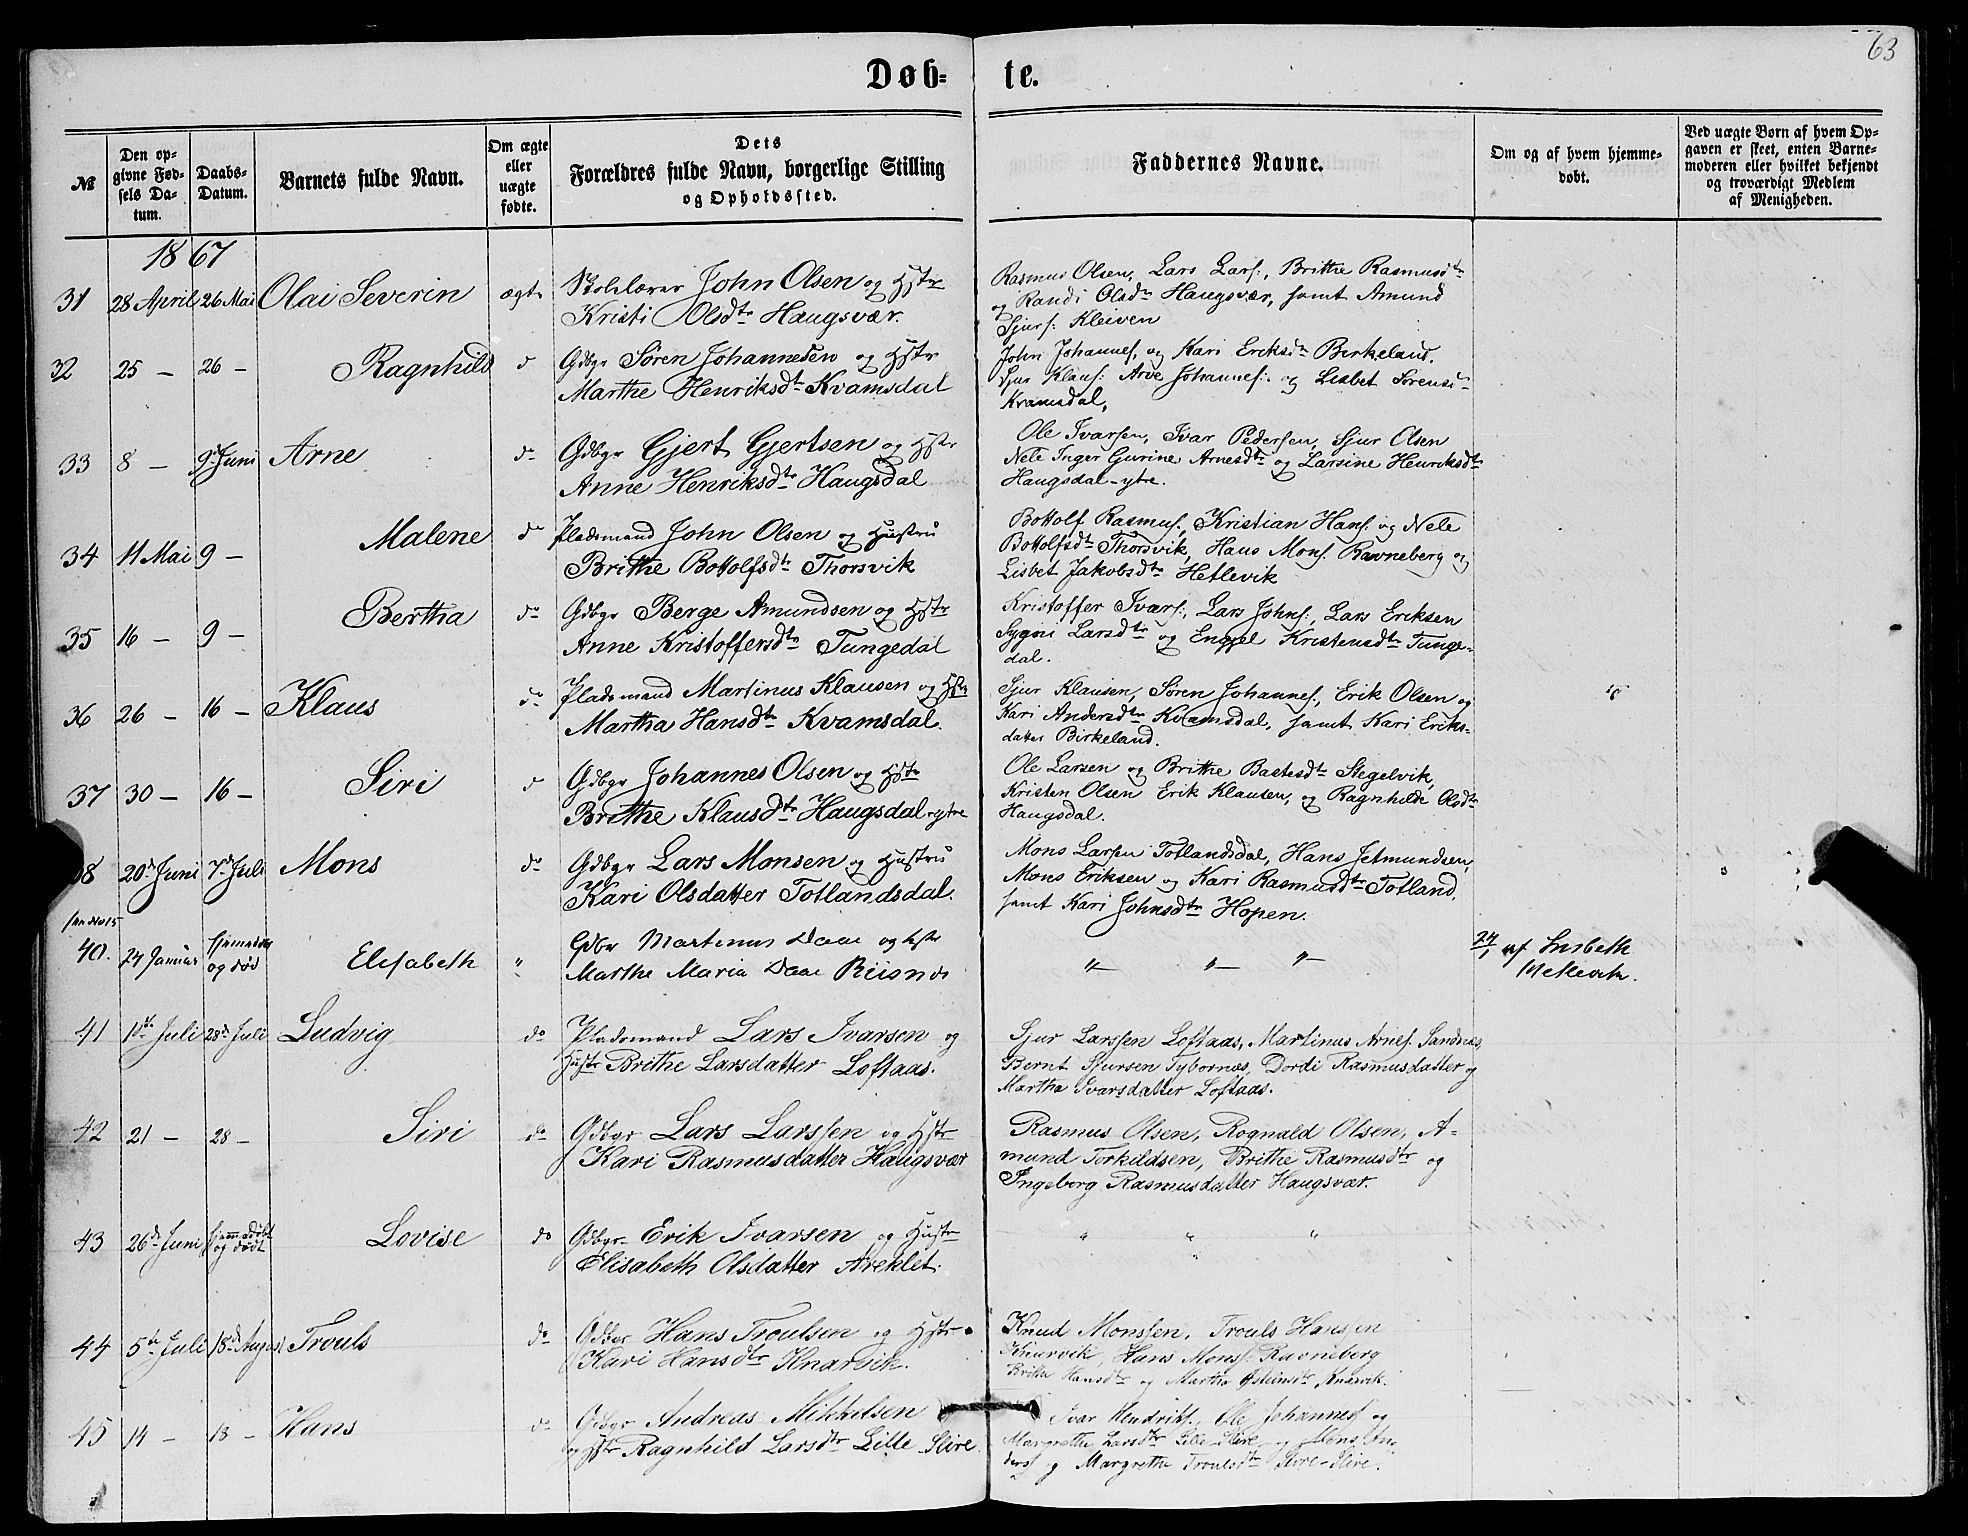 63
Døb-
te.
№
Den op-
givne Fød-
sels Da-
tum.
Daabs-
Datum.
Barnets fulde Navn.
Om ægte
eller
uægte
fødte.
Dets
Forældres fulde Navn, borgerlige Stilling
og Opholdssted.
Faddernes Navne.
Om og af hvem hjemme-
døbt.
Ved uægte Børn af hvem Op-
gaven er skeet, enten Barne-
moderen eller hvilket bekjendt
og troværdigt Medlem
af Menigheden.
1867
31 28 April 26 Mai Olai Severin ægte Skolelærer John Olsen og Hstr
Kristi Olsdtr Haugsvær.
Rasmus Olsen, Lars Lars:, Brithe Rasmusdtr
og Randi Olsdtr Haugsvær, samt Amund
Sjurs: Kleiven
32 25 — 26 — Ragnhild do Gdbgr Søren Johannesen og Hstr
Marthe Henriksdtr Kvamsdal
John Johannes, og Kari Eriksdtr Birkeland,
Sjur Klaus: Arve Johannes: og Lisbet Sørensd
Kvamsdal,
33 8 — 9d Juni Arne do Gdbgr Gjert Gjertsen og Hstr
Anne Henriksdtr Haugsdal
Ole Ivarsen, Ivar Pedersen, Sjur Olsen
Nele Inger Gurine Arnesdtr og Larsine Henriksdtr
Haugsdal-ytre.
34 11 Mai 9 — Malene do Pladsmand John Olsen og Hustru
Brithe Bottolfsdtr Thorsvik
Bottolf Rasmus:, Kristian Hans: og Nele
Bottolfsdtr Thorsvik, Hans Mons: Ravneberg og
Lisbet Jakobsdtr Hetlevik
35 16 — 9 — Bertha do Gdbgr Berge Amundsen og Hstr
Anne Kristoffersdtr Tungedal
Kristoffer Ivars:, Lars Johns:, Lars Eriksen
Sygni Larsdtr og Engel Kristensdtr Tunge-
dal.
36 26 — 16 — Klaus do Pladsmand Martinus Klausen og Hstr
Martha Hansdtr Kvamsdal.
Sjur Klausen, Søren Johannes:, Erik Olsen og
Kari Andersdtr Kvamsdal, samt Kari Eriks-
datter Birkeland.
37 30 — 16 — Siri do Gdbgr Johannes Olsen og Hstr
Brithe Klausdtr Haugsdal-ytre
Ole Larsen og Brithe Bastesdtr Stegelvik,
Kristen Olsen Erik Klausen, og Ragnhilde Olsdtr
Haugsdal.
38 20d Juni 7d Juli Mons do Gdbgr Lars Monsen og Hustru
Kari Olsdatter Totlandsdal.
Mons Larsen Totlandsdal, Hans Jetmundsen,
Mons Eriksen og Kari Rasmusdtr Totland,
samt Kari Johnsdtr Hopen.
40. 24 Januar hjemmedøbt
og død Elisabeth " Gdbr Martinus Daae og Hstr
Marthe Maria Daae Risnes
" " "
24/1 af Lisbeth
Hetlevik.
41 1ste Juli 28d Juli Ludvig do Pladsmand Lars Ivarsen og
Hustr Brithe Larsdatter Loftaas.
Sjur Larssen Loftaas, Martinus Arnes: Sandnæs,
Bernt Sjursen Tybornæs, Dordi Rasmusdatter og
Martha Ivarsdatter Loftaas.
42 21 — 28 — Siri do Gdbgr Lars Larssen og Hstr
Kari Rasmusdatter Haugsvær
Rasmus Olsen, Rognald Olsen, A-
mund Torkildsen, Brithe Rasmusdtr og
Ingeborg Rasmusdatter Haugsvær.
43 26d Juni hjemmedøbt
og dødt Lovise do Gdbgr Erik Ivarsen og Hustr
Elisabeth Olsdatter Areklet.
" " "
44 5te Juli 18d August Trouls do Gdbgr Hans Troulsen og Hstr
Kari Hansdtr Knarvik.
Knud Monssen, Trouls Hanssen
Knarvik, Hans Mons: Ravneberg
Brithe Hansdtr og Martha Østeinsdtr Knarvik.
45 14 — 18 — Hans do Gdbgr Andreas Mikkelsen
og Hstr Ragnhild Larsdtr Lille Slire.
Ivar Hendriks:, Ole Johannes: og
Margrethe Larsdtr Lille-Slire og Mons An-
ders: og Margrethe Troulsdtr Slire-Slire.